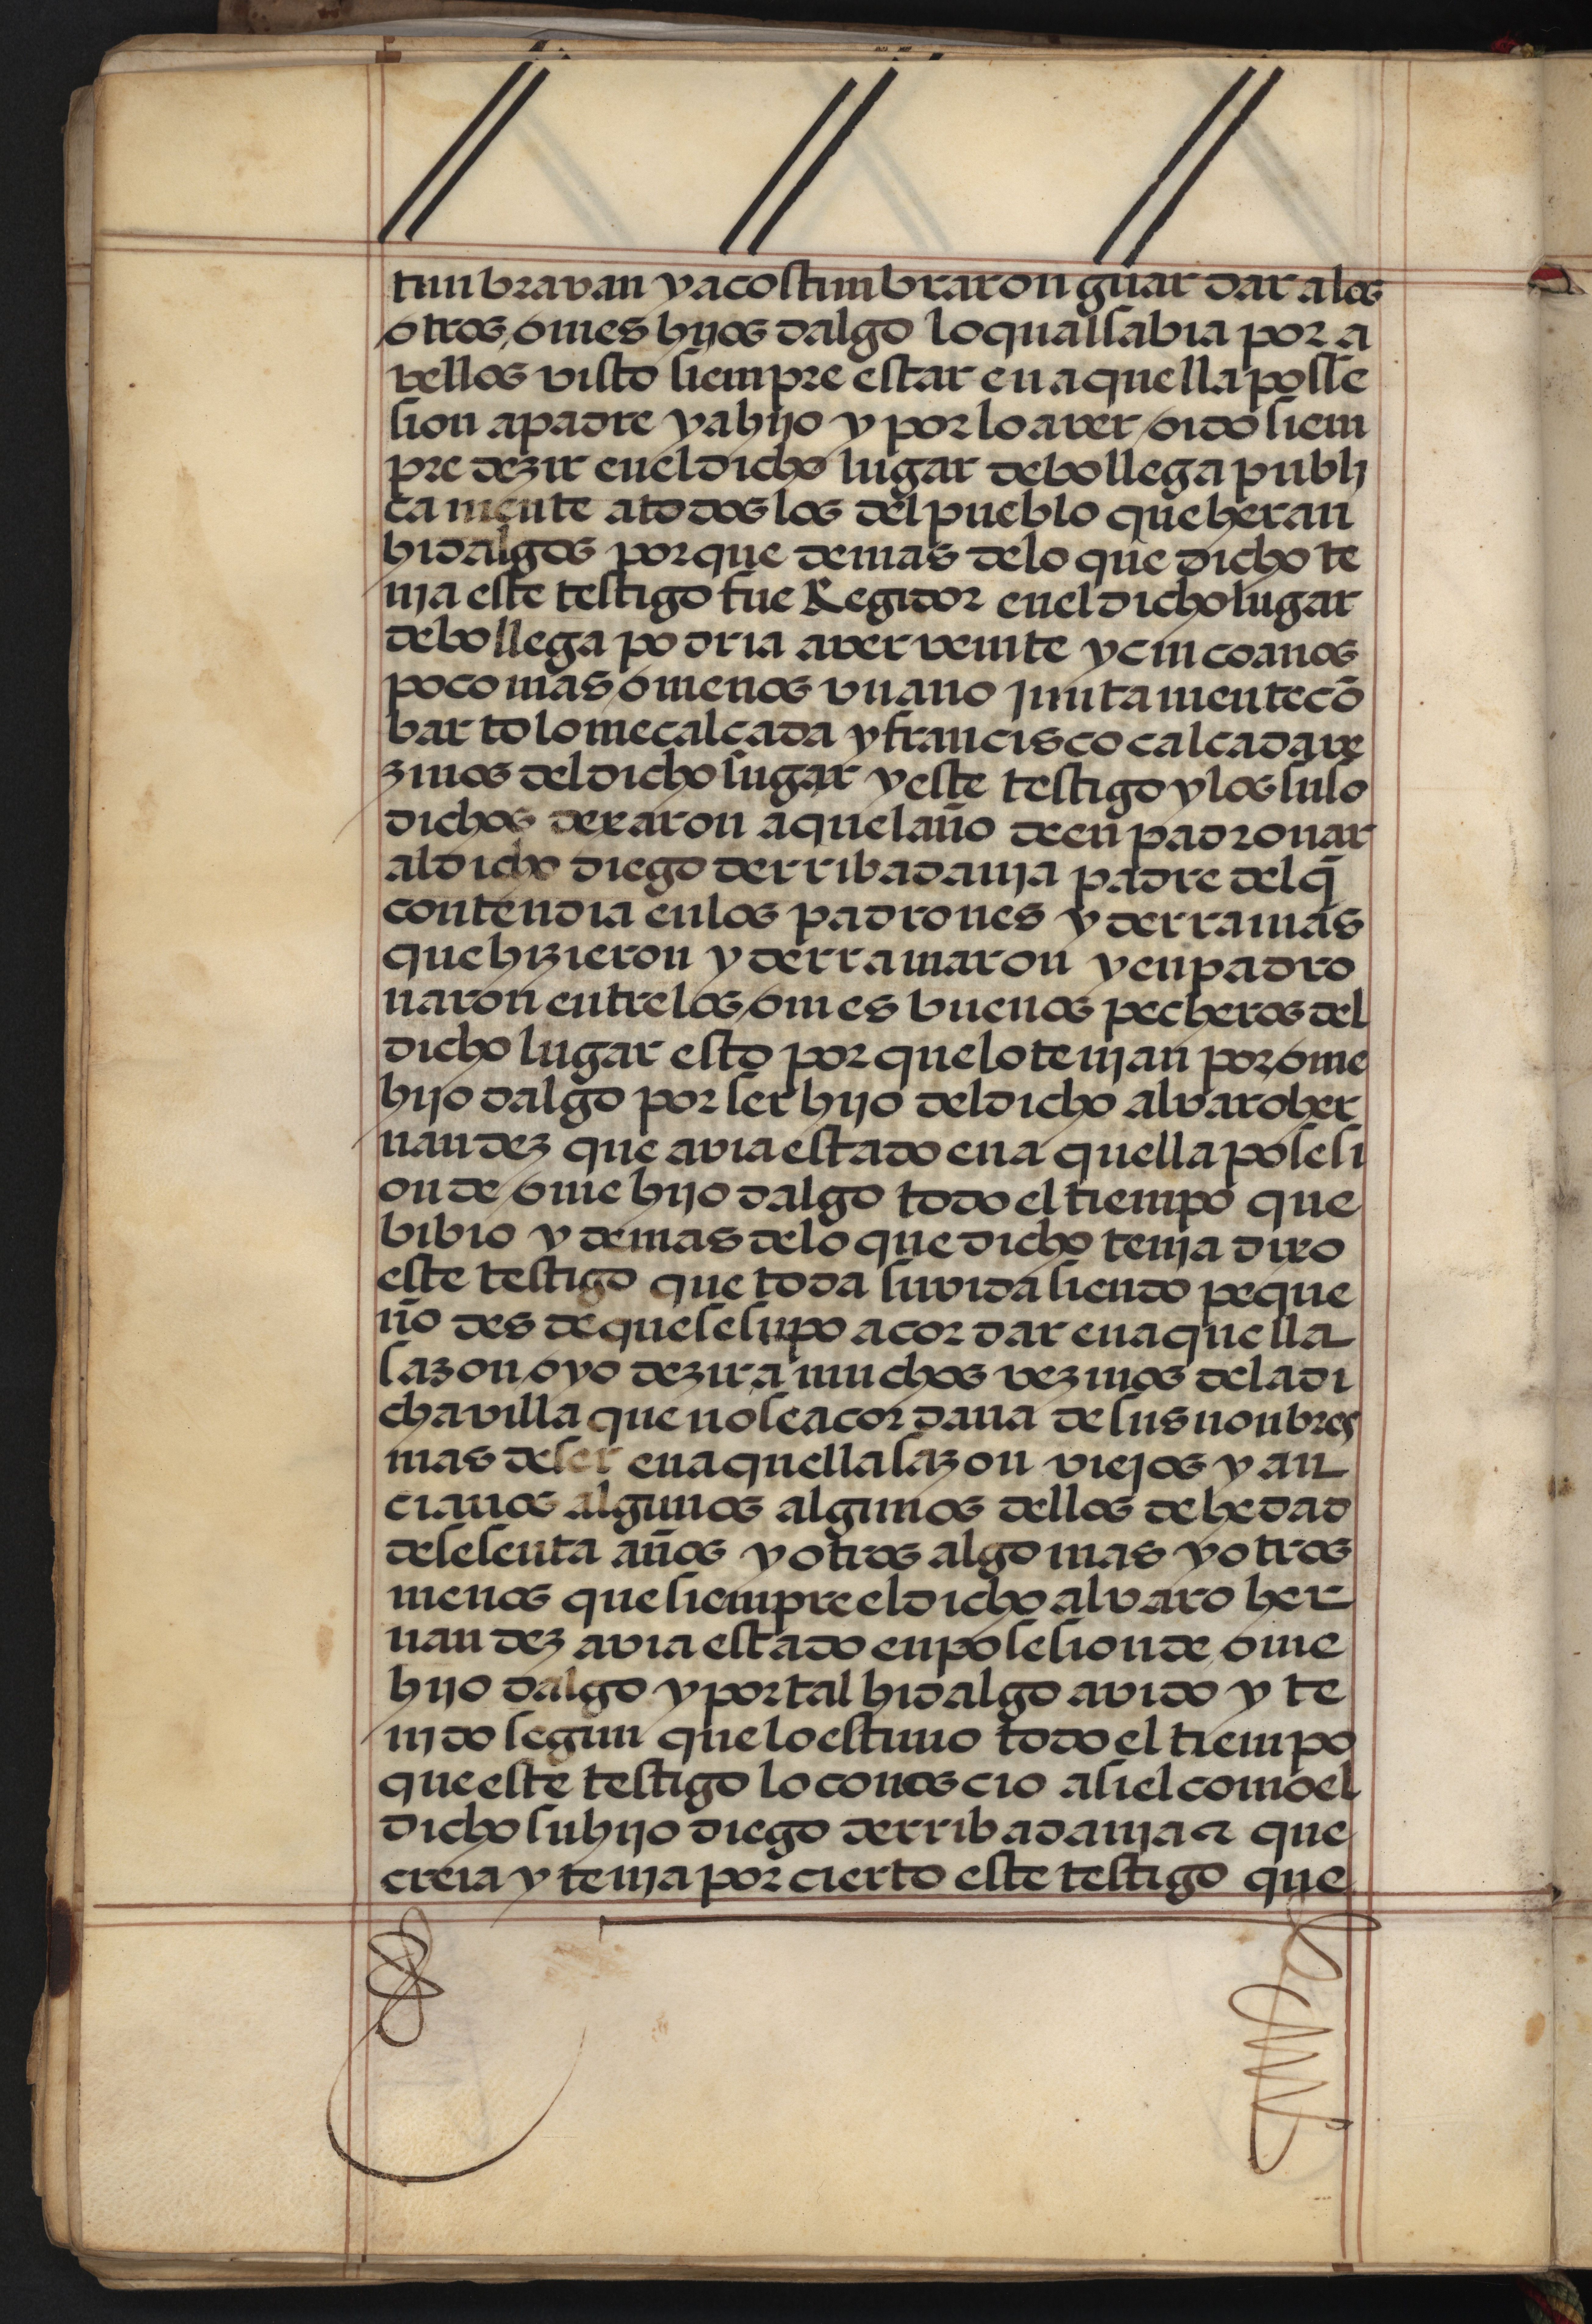 tunbravan y acostunbraron guardar a los
otros omes hijos dalgo lo qual sabia por a
vellos visto siempre estar en aquella posse
sion a padre y a hijo y por lo aver oido siem
pre dezir en el dicho lugar de bollega publi
camente a todos los del pueblo que heran
hidalgos porque demas de lo que dicho te
nja este testigo fue Regidor en el dicho lugar
de bollega podria aver veinte y cinco anos
poco mas o menos vn ano juntamente cõ
bartolome calcada y francisco calcada ve
zinos del dicho lugar y este testigo y los suso
dichos dexaron aquel año de enpadronar
al dicho diego de rribadanja padre del q̃
contendia en los padrones y derramas
que hizieron y derramaron y enpadro
naron entre los omes buenos pecheros del
dicho lugar esto porque lo tenjan por ome
hijo dalgo por ser hijo del dicho alvaro her
nandez que avia estado en aquella posesi
on de ome hijo dalgo todo el tiempo que
bibio y demas de lo que dicho tenja dixo
este testigo que toda su vida siendo peque
ño desde que se supo acordar en aquella
sazon oyo dezir a muchos vezinos de la di
cha villa que no se acordaua de sus nonbres
mas de ser en aquella sazon viejos y an
cianos algunos algunos dellos de hedad
de sesenta años y otros algo mas y otros
menos que siempre el dicho alvaro her
nandez avia estado en posesion de ome
hijo dalgo y por tal hidalgo avido y te
njdo segun que lo estuuo todo el tiempo
que este testigo lo conoscio asi el como el
dicho su hijo diego de rribadanja que
creia y tenja por cierto este testigo que